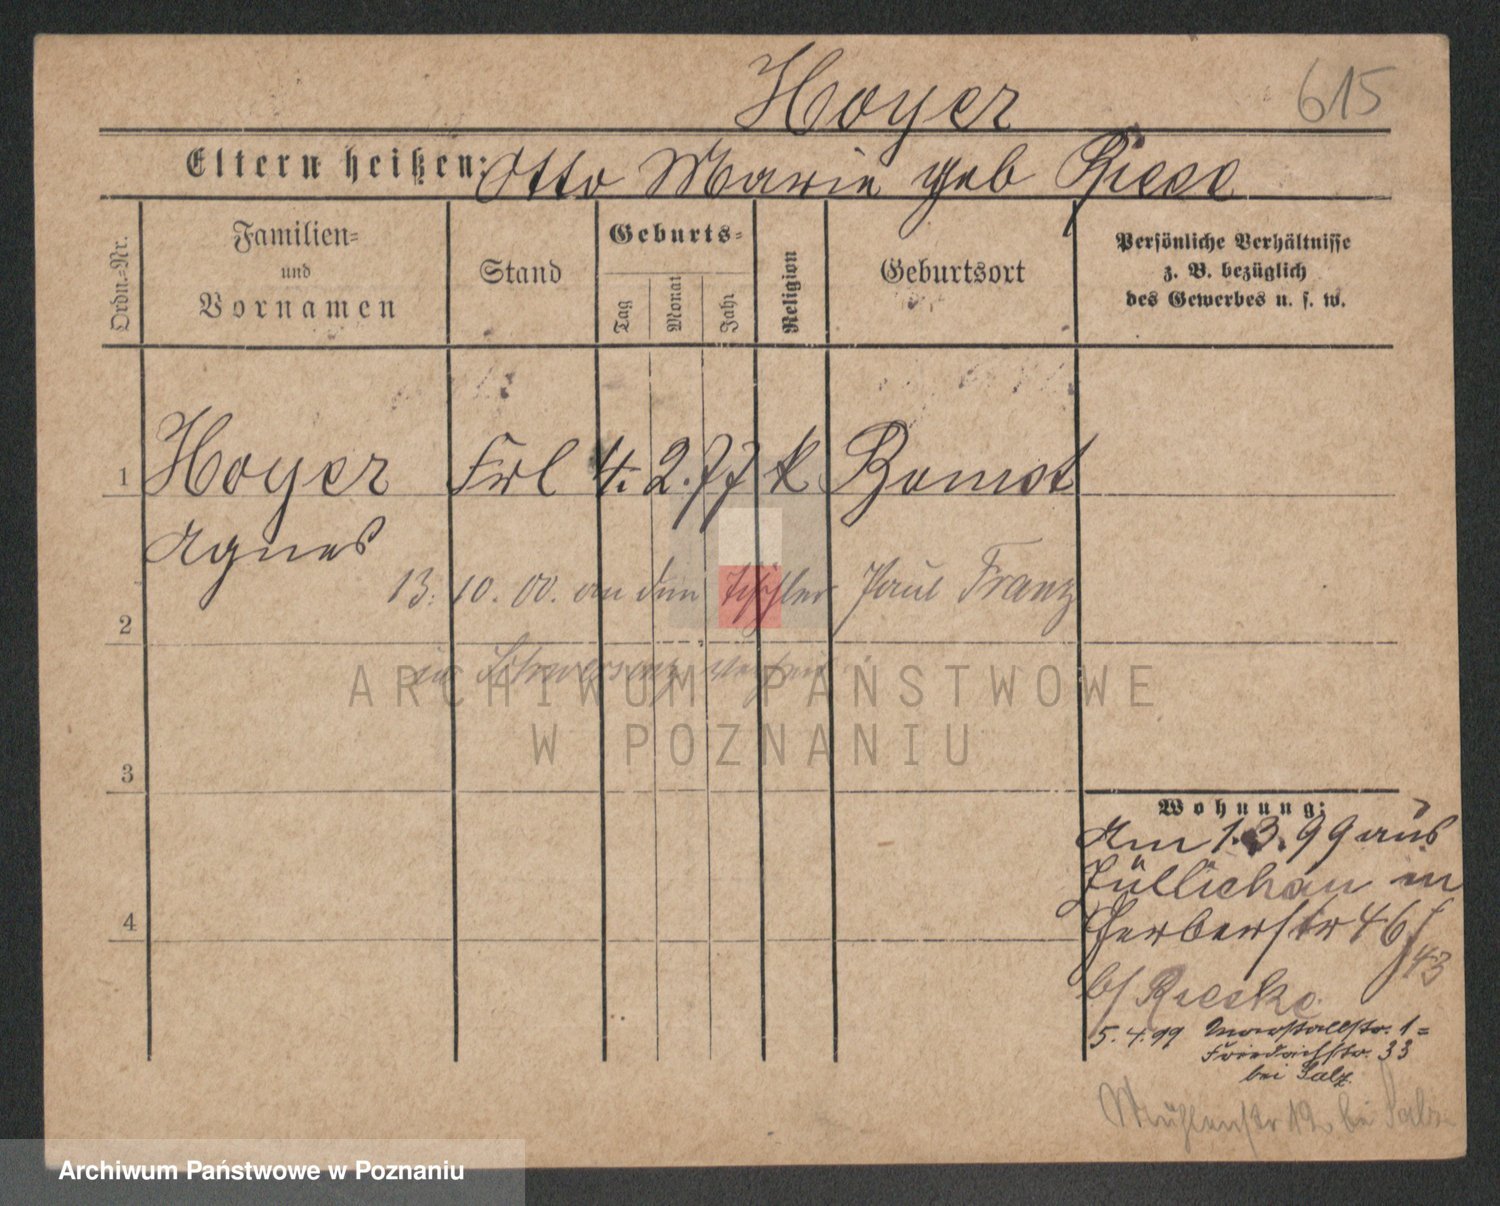 Hoyer 615
Eltern heißen: Otto Marie geb Riese
Ordn.=Nr.
Familien=
und
Vornamen
Stand
Geburts=
Tag
Monat
Jahr
Religion
Geburtsort
Persönliche Verhältnisse
z. B. bezüglich
des Gewerbes u. s. w.
1 Hoyer Frl 4. 2. 77 k Bomst
Agnes
13. 10. 00. an den Tischler Paul Franz
2
in Schwersenz
ARCHIWUM PAŃSTWOWE
W POZNANIU
3
Wohnung:
Am 1.3.99 aus
Züllichau in
4
Gerberstr 46/
43
b/ Rieske
5.4.99 Marstallstr. 1=
Friedrichstr. 33
bei Salz
Mühlenstr 12 bei
Archiwum Państwowe w Poznaniu